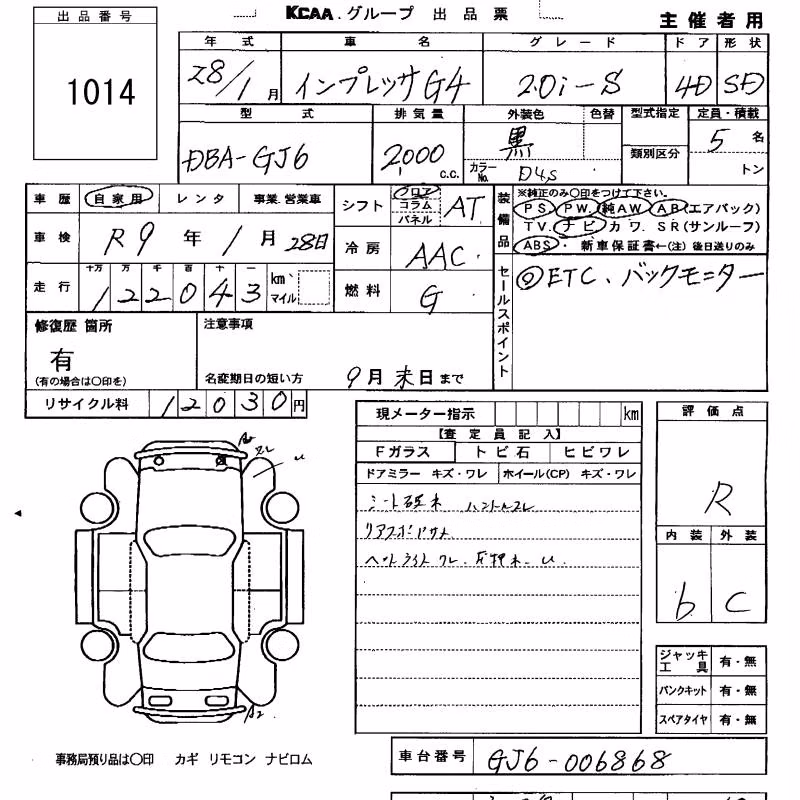 出品番号
1014
KCAA.グループ 出品票
主催者用
年式 車名 グレード ドア 形状
28/1月 インプレッサG4 2.0i-S 4D SD
型式 排気量 外装色 色替 型式指定 定員・積載
類別区分
DBA-GJ6 2,000 c.c. 黒 カラーNo. D4S 5名
トン
車歴 自家用 レンタ 事業.営業車
車検 R9年 1月 28日
走行 十万 万 千 百 十 一
122043 km・マイル
シフト フロア コラム パネル AT
冷房 AAC
燃料 G
装備品
※純正のみ○印をつけて下さい。
PS PW 純AW AB(エアバック)
TV. ナビ カワ. SR(サンルーフ)
ABS・ 新車保証書←(注) 後日送りのみ
セールスポイント
ETC、バックモニター
修復歴 箇所
有
(有の場合は○印を)
注意事項
名変期日の短い方 9月末日まで
リサイクル料 12030円
現メーター指示 km
【査定員記入】
Fガラス トビ石 ヒビワレ
ドアミラー キズ・ワレ ホイール(CP) キズ・ワレ
評価点
R
内装 外装
b C
A2
U
A2
ジャッキ工具 有・無
パンクキット 有・無
スペアタイヤ 有・無
事務局預り品は○印 カギ リモコン ナビロム
車台番号 GJ6-006868